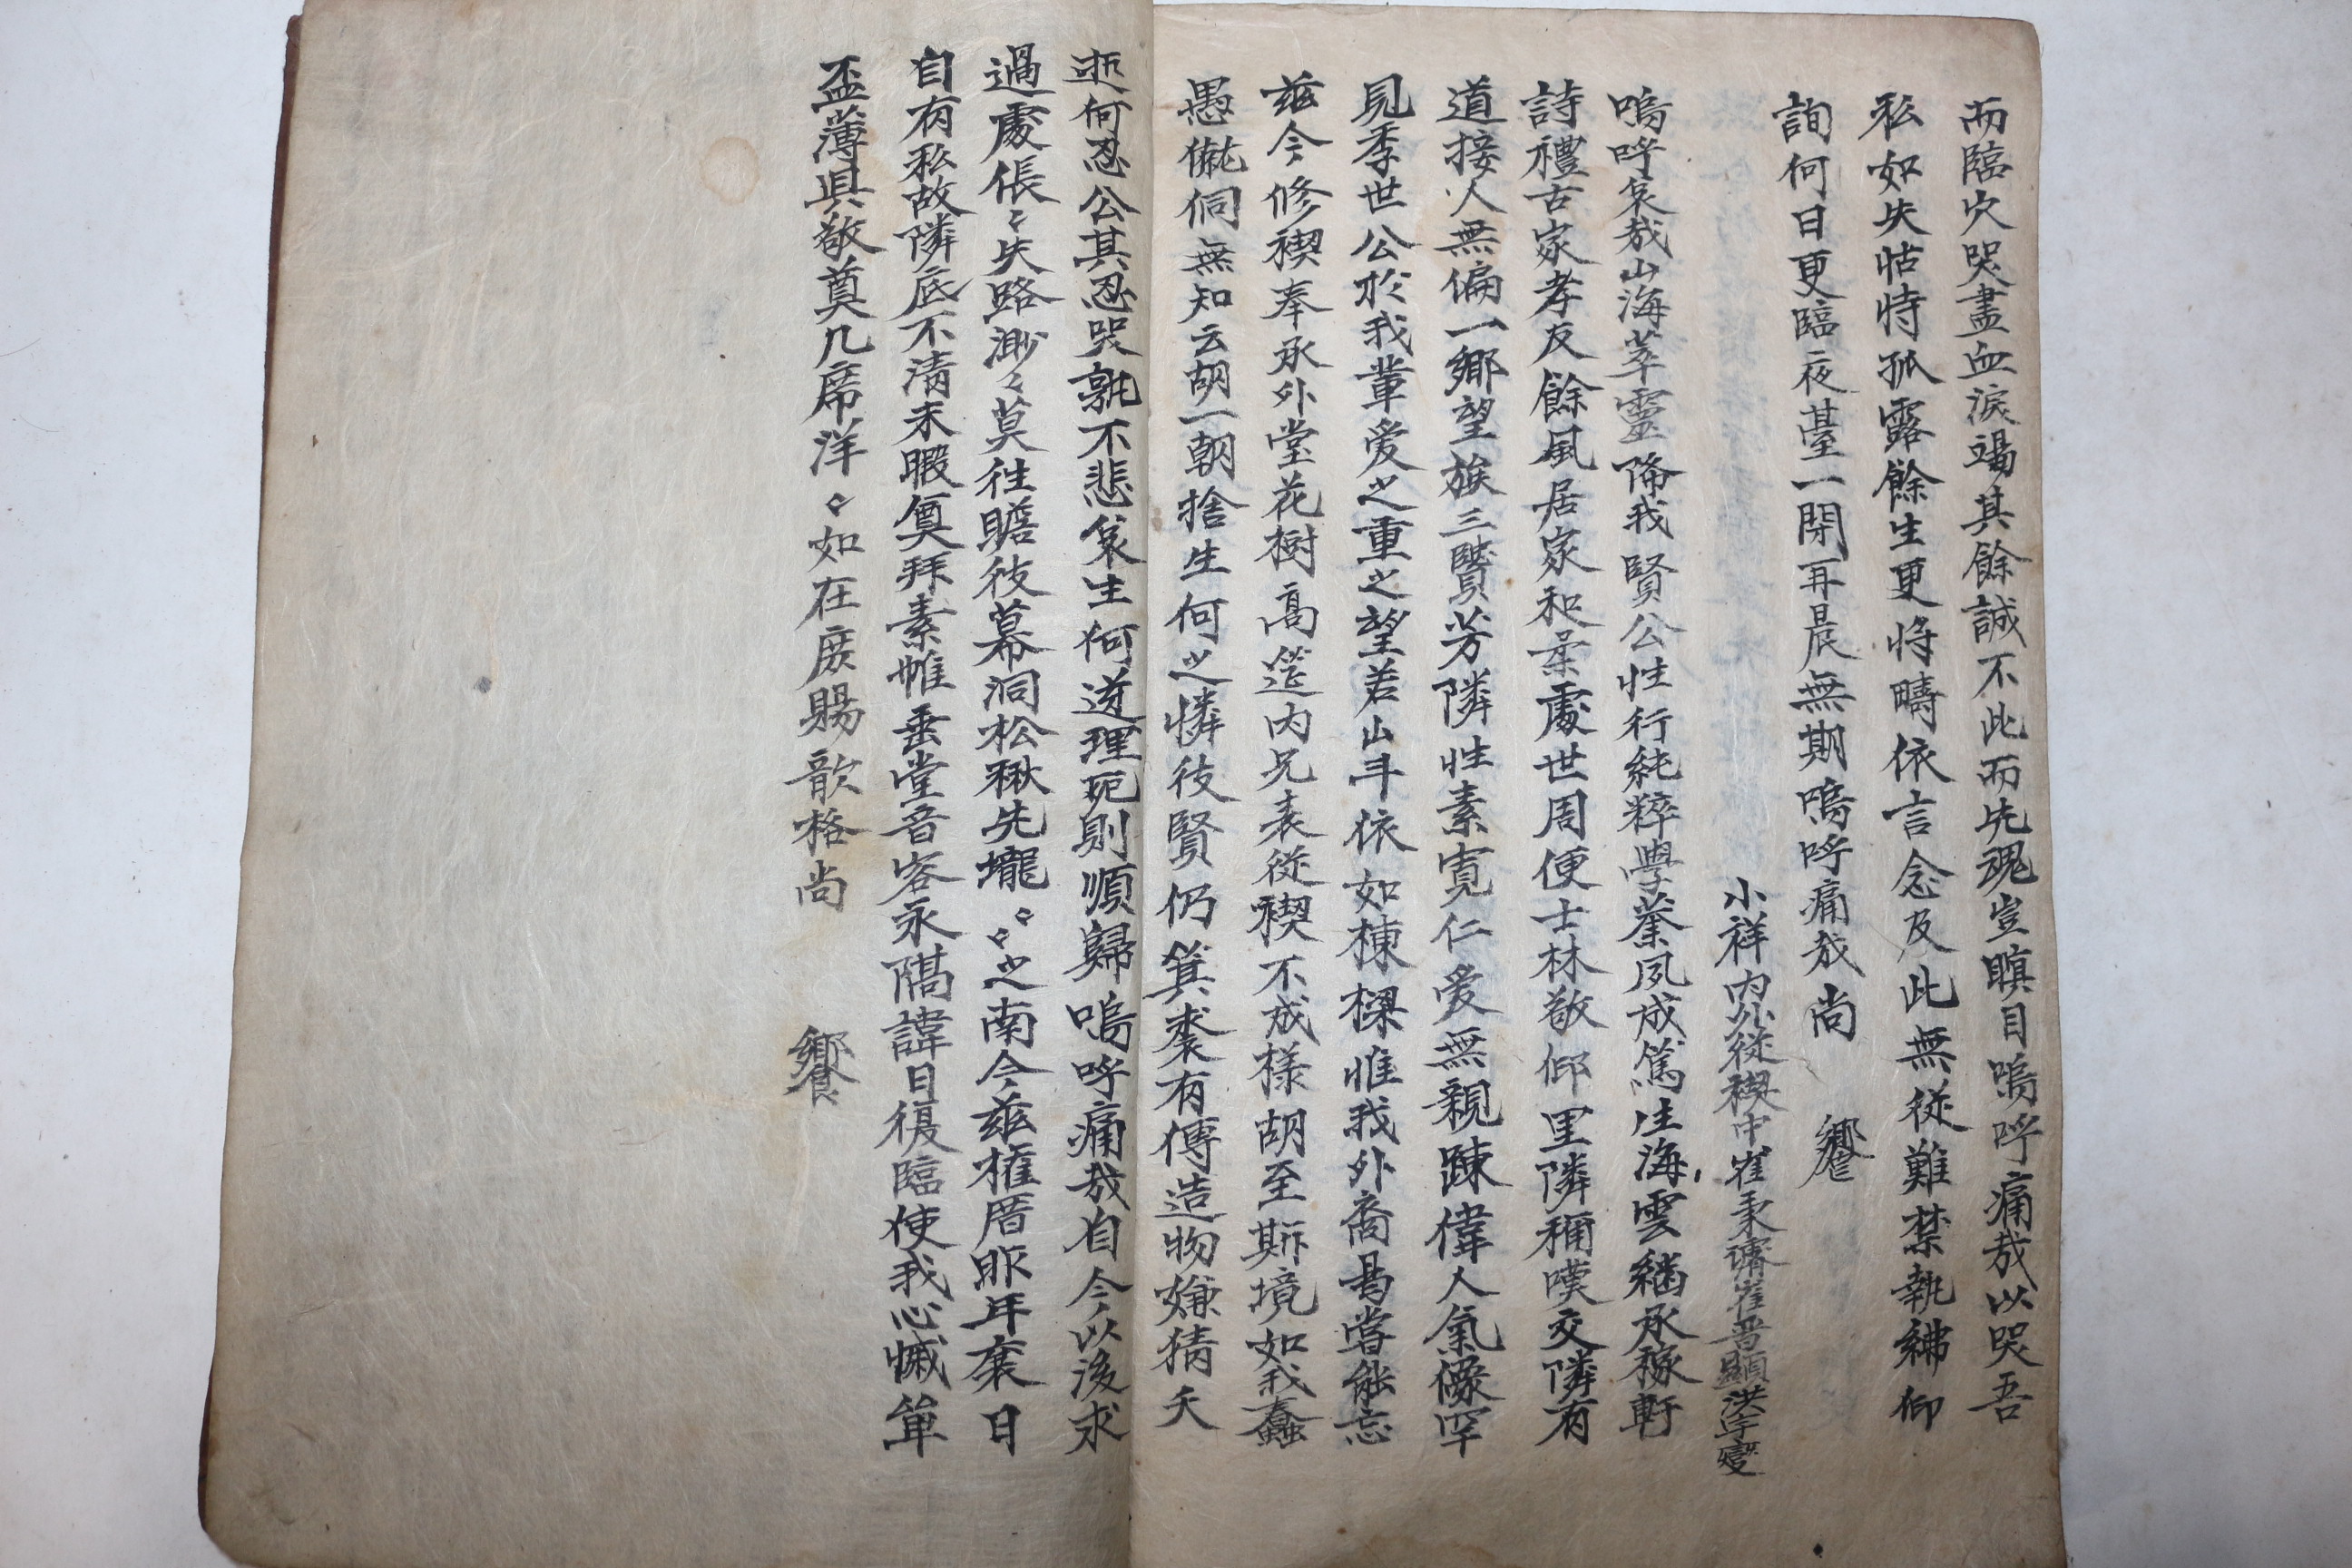 而臨穴哭盡血淚竭其餘誠不此而先魂豈瞑目嗚呼痛哉以哭吾
私如失怙恃孤露餘生更將疇依言念及此無從難禁執紼仰
詢何日更臨夜臺一閉再晨無期嗚呼痛哉尚 饗
小祥內外從禊中崔秉 崔晋顯洪
嗚呼哀哉山海萃靈降我賢公性行純粹學業夙成篤生海雲繼承稼軒
詩禮古家孝友餘風居家和柔處世周便士林敬仰里隣稱嘆交隣有
道接人無偏一鄉望族三賢芳隣性素寬仁愛無親踈偉人氣像罕
見季世公於我輩愛之重之望若山斗依如棟樑惟我外裔曷嘗能忘
玆今修禊奉承外堂花樹高筵內兄表從禊不成樣胡至斯境如我蠢
愚儱侗無知云胡一朝捨生何之憐彼賢仍箕裘有傳造物嫌猜夭
逝何忍公其忍哭孰不悲哀生何道理死則順歸嗚呼痛哉自今以後求
過處倀〻失路渺〻莫往瞻彼幕洞松楸先壠〻〻之南今玆權厝昨年襄日
自有私故隣底不淸未暇奠拜素帷垂堂音容永隔諱日復臨使我心慽單
盃薄具敬奠几席洋〻如在庶賜歆格尚 饗